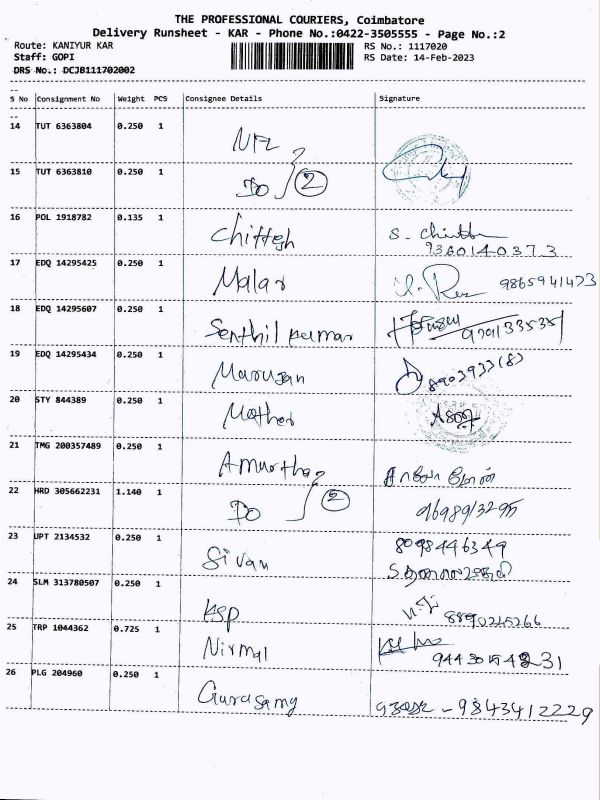 THE PROFESSIONAL COURIERS, Coimbatore
Delivery Runsheet - KAR - Phone No.:0422-3505555 - Page No.:2
Route: KANIYUR KAR RS No.: 1117020
Staff: GOPI RS Date: 14-Feb-2023
DRS No.: DCJB111702002
S No Consignment No Weight PCS Consignee Details Signature
14 TUT 6363804 0.250 1 NFL
15 TUT 6363810 0.250 1 Do 2
16 POL 1918782 0.135 1 Chittesh S. Chitt
9360140373
17 EDQ 14295425 0.250 1 Malar 9865941473
18 EDQ 14295607 0.250 1 Senthil kumar 9791335351
19 EDQ 14295434 0.250 1 Murugan 8903933183
20 STY 844389 0.250 1 Mother
21 TMG 200357489 0.250 1 Amurtha
22 HRD 305662231 1.140 1 Do 2 9698913295
23 UPT 2134532 0.250 1 Sivan 8098446349
24 SLM 313780507 0.250 1 KSP 8890245266
25 TRP 1044362 0.725 1 Nirmal
26 PLG 204960 0.250 1 Gurusamy - 9843412229